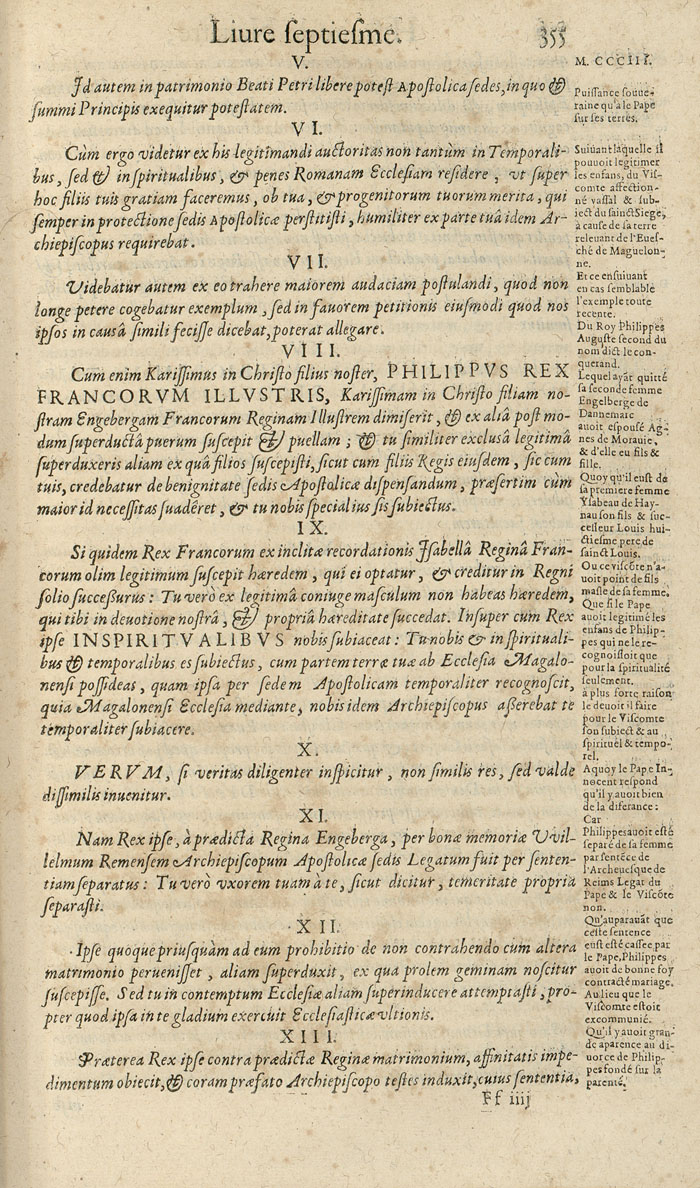 Liure ſeptieſme. 355
M. CCCIII.
V.
Id autem in patrimonio Beati Petri libere poteſt Apoſtolica ſedes, in quo &
ſummi Principis exequitur poteſtatem.
VI.
Cùm ergo videtur ex his legitimandi auctoritas non tantùm in Temporali-
bus, ſed & in ſpiritualibus, & penes Romanam Eccleſiam reſidere, vt ſuper
hoc filiis tuis gratiam faceremus, ob tua, & progenitorum tuorum merita, qui
ſemper in protectione ſedis Apoſtolicæ perſtitiſti, humiliter ex parte tuâ idem Ar-
chiepiſcopus requirebat.
VII.
Videbatur autem ex eo trahere maiorem audaciam poſtulandi, quod non
longe petere cogebatur exemplum, ſed in fauorem petitionis eiuſmodi quod nos
ipſos in causâ ſimili feciſſe dicebat, poterat allegare.
VIII.
Cum enim Kariſſimus in Chriſto filius noſter, PHILIPPVS REX
FRANCORVM ILLVSTRIS, Kariſſimam in Chriſto filiam no-
ſtram Engebergam Francorum Reginam Illuſtrem dimiſerit, & ex aliâ poſt mo-
dum ſuperductâ puerum ſuſcepit & puellam ; & tu ſimiliter excluſâ legitimâ
ſuperduxeris aliam ex quâ filios ſuſcepiſti, ſicut cum filiis Regis eiuſdem, ſic cum
tuis, credebatur de benignitate ſedis Apoſtolicæ diſpenſandum, præſertim cùm
maior id neceſſitas ſuadêret, & tu nobis ſpecialius ſis ſubiectus.
IX.
Si quidem Rex Francorum ex inclitæ recordationis Iſabellâ Reginâ Fran-
corum olim legitimum ſuſcepit hæredem, qui ei optatur, & creditur in Regni
ſolio ſucceſſurus : Tu verò ex legitimâ coniuge maſculum non habeas hæredem,
qui tibi in deuotione noſtrâ, & propriâ hæreditate ſuccedat. Inſuper cum Rex
ipſe INSPIRITVALIBVS nobis ſubiaceat : Tu nobis & in ſpirituali-
bus & temporalibus es ſubiectus, cum partem terræ tuæ ab Eccleſia Magalo-
nenſi poſſideas, quam ipſa per ſedem Apoſtolicam temporaliter recognoſcit,
quia Magalonenſi Eccleſia mediante, nobis idem Archiepiſcopus aſſerebat te
temporaliter ſubiacere.
X.
VERVM, ſi veritas diligenter inſpicitur, non ſimilis res, ſed valde
diſſimilis inuenitur.
XI.
Nam Rex ipſe, à prædicta Regina Engeberga, per bonæ memoriæ Vvil-
lelmum Remenſem Archiepiſcopum Apoſtolicæ ſedis Legatum fuit per ſenten-
tiam ſeparatus : Tu verò vxorem tuam à te, ſicut dicitur, temeritate propria
ſeparaſti.
XII.
Ipſe quoque priuſquàm ad eum prohibitio de non contrahendo cùm altera
matrimonio perueniſſet, aliam ſuperduxit, ex qua prolem geminam noſcitur
ſuſcepiſſe. Sed tu in contemptum Eccleſiæ aliam ſuperinducere attemptaſti, pro-
pter quod ipſa in te gladium exercuit Eccleſiaſticæ vltionis.
XIII.
Præterea Rex ipſe contra prædictæ Reginæ matrimonium, affinitatis impe-
dimentum obiecit, & coram præfato Archiepiſcopo teſtes induxit, cuius ſententia,
Ff iiij
Puiſſance ſouue-
raine qu'a le Pape
ſur ſes terres.
Suiuant laquelle il
pouuoit legitimer
les enfans, du Viſ-
comte affection-
né vaſſal & ſub-
iect du ſainct Siege,
à cauſe de ſa terre
releuant de l'Eueſ-
ché de Maguelon-
ne.
Et ce enſuiuant
en cas ſemblable
l'exemple toute
recente.
Du Roy Philippes
Auguſte ſecond du
nom dict le con-
querand.
Lequel ayãt quitté
ſa ſeconde femme
Engelberge de
Dannemarc
auoit eſpouſé Ag-
nes de Morauie,
& d'elle eu fils &
fille.
Quoy qu'il euſt de
ſa premiere femme
Yſabeau de Hay-
nau ſon fils & ſuc-
ceſſeur Louis hui-
ctieſme pere de
ſainct Louis.
Ou ce viſcõte n'a-
uoit point de fils
maſle de ſa femme.
Que ſi le Pape
auoit legitimé les
enfans de Philip-
pes qui ne le re-
cognoiſſoit que
pour la ſpiritualité
ſeulement.
à plus forte raiſon
le deuoit il faire
pour le Viſcomte
ſon ſubiect & au
ſpirituel & tempo-
rel.
A quoy le Pape In-
nocent reſpond
qu'il y auoit bien
de la diferance :
Car
Philippes auoit eſté
ſeparé de ſa femme
par ſentẽce de
l'Archeueſque de
Reims Legat du
Pape & le Viſcõte
non.
Qu'auparauãt que
ceſte ſentence
euſt eſté caſſee par
le Pape, Philippes
auoit de bonne foy
contracté mariage.
Au lieu que le
Viſcomte eſtoit
excommunié.
Qu'il y auoit gran-
de aparence au di-
uorce de Philip-
pes fondé ſur la
parenté.